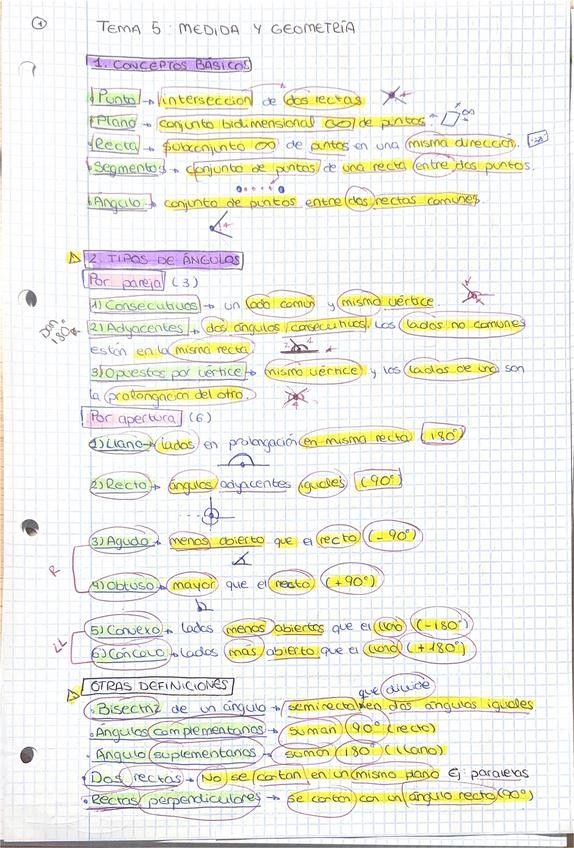 1
TEMA 5: MEDIDA Y GEOMETRÍA
1. CONCEPTOS BÁSICOS
Punto → intersección de dos rectas
Plano → conjunto bidimensional ∞ de puntos. ∞
Recta → subconjunto ∞ de puntos en una misma dirección.
Segmento → conjunto de puntos de una recta entre dos puntos.
Ángulo → conjunto de puntos entre dos rectas comunes
2. TIPOS DE ÁNGULOS
Por pareja (3)
1) Consecutivos → un lado común y mismo vértice.
Dan 180º
2) Adyacentes → dos ángulos consecutivos. Los lados no comunes
están en la misma recta
3) Opuestos por vértice → mismo vértice y los lados de uno son
la prolongación del otro.
Por apertura (6)
1) Llano → lados en prolongación en misma recta (180º)
2) Recto → ángulos adyacentes iguales (90º)
3) Agudo → menos abierto que el recto (-90º)
R
4) Obtuso → mayor que el recto (+90º)
5) Convexo → lados menos abiertos que el llano (-180º)
LL
6) Cóncavo → lados más abierto que el llano (+180º)
OTRAS DEFINICIONES
que divide
· Bisectriz de un ángulo → semirecta en dos ángulos iguales
· Ángulos complementarios → suman 90º (recto)
· Ángulo suplementarios → suman 180º (llano)
· Dos rectas → No se cortan en un mismo plano Ej: paralelas
· Rectas perpendiculares → se cortan con un ángulo recto (90º)